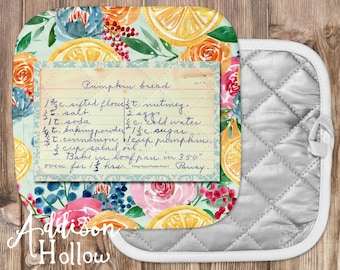 Pumpkin bread
1 ⅔ c. sifted flour ¼ t. nutmeg
t. salt 2 eggs
1 t. soda c. cold water
t. baking powder 1 ½ c. sugar
t. cinnamon 1 cup pumpkin
cup salad oil.
Bake in loaf pan in 350°
oven for 1 ½ hrs.
Addison
Hollow